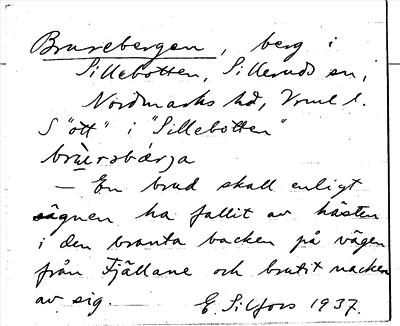 Brurebergen, berg i
Sillebotten, Silleruds sn,
Nordmarks hd, Vrml l.
S "ött" i "Sillebotten"
brùersbærja
— En brud skall enligt
sägnen ha fallit av hästen
i den branta backen på vägen
från Fjällane och brutit nacken
av sig. E. Silfors 1937.